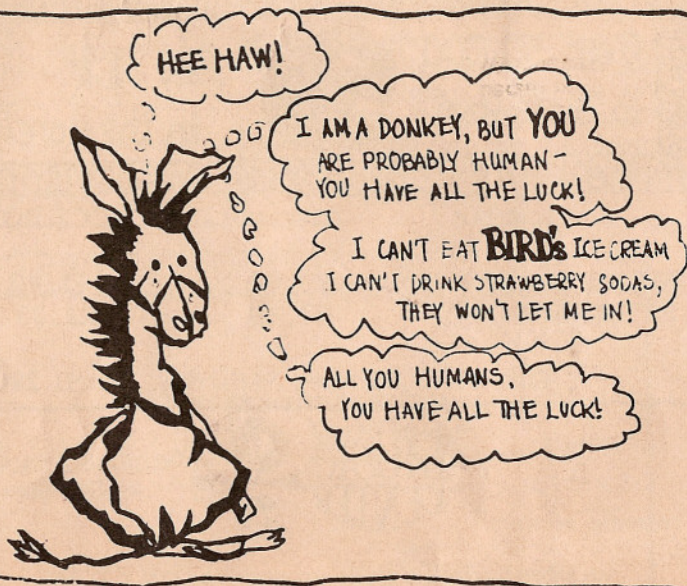 HEE HAW!
I AM A DONKEY, BUT YOU
ARE PROBABLY HUMAN-
YOU HAVE ALL THE LUCK!
I CAN'T EAT BIRD's ICE CREAM
I CAN'T DRINK STRAWBERRY SODAS,
THEY WON'T LET ME IN!
ALL YOU HUMANS,
YOU HAVE ALL THE LUCK!